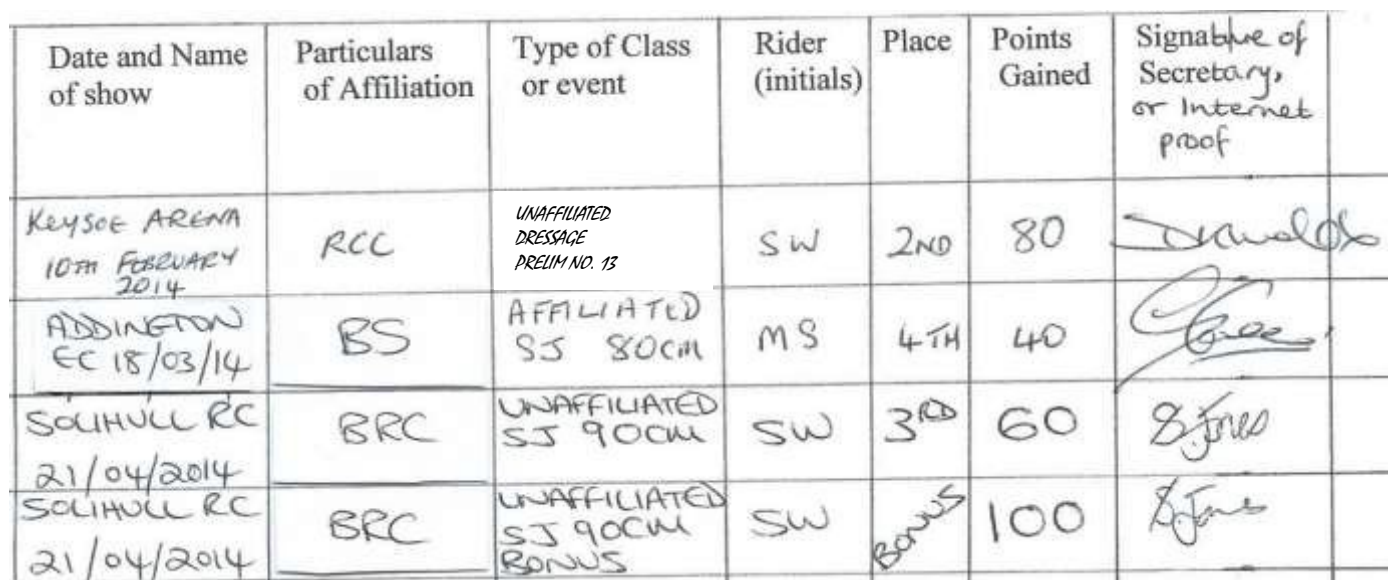 Date and Name
of show
Particulars
of Affiliation
Type of Class
or event
Rider
(initials)
Place
Points
Gained
Signature of
Secretary,
or Internet
proof
KEYSOE ARENA
10TH FEBRUARY
2014
RCC
UNAFFILIATED
DRESSAGE
PRELIM NO. 13
SW
2ND
80
ADDINGTON
EC 18/03/14
BS
AFFILIATED
SJ 80CM
MS
4TH
40
SOLIHULL RC
21/04/2014
BRC
UNAFFILIATED
SJ 90CM
SW
3RD
60
S.Jones
SOLIHULL RC
21/04/2014
BRC
UNAFFILIATED
SJ 90CM
BONUS
SW
BONUS
100
S.Jones